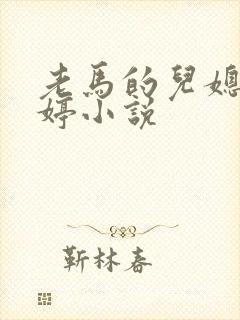 老馬的兒媳
婷小說
靳林春